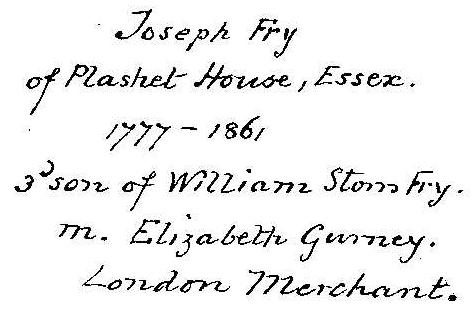 Joseph Fry
of Plashet House, Essex.
1777 - 1861
3d son of William Storrs Fry.
m. Elizabeth Gurney.
London Merchant.